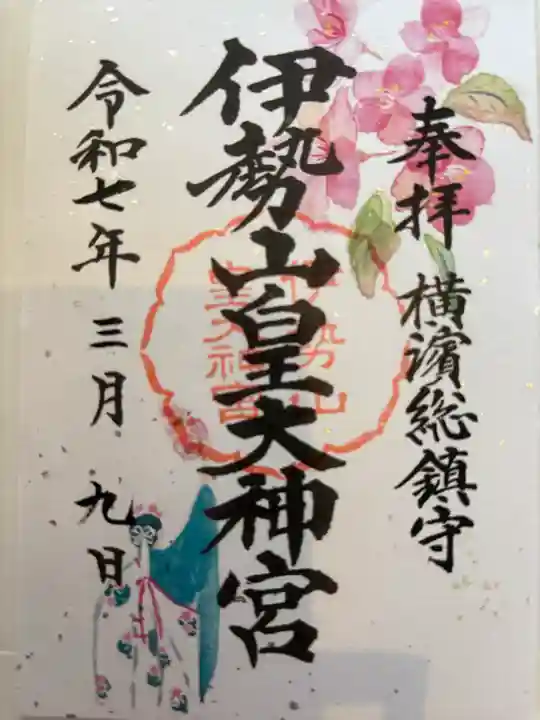 奉拝 横濱総鎮守
伊勢山皇大神宮
伊勢山
皇大神宮
令和七年三月九日